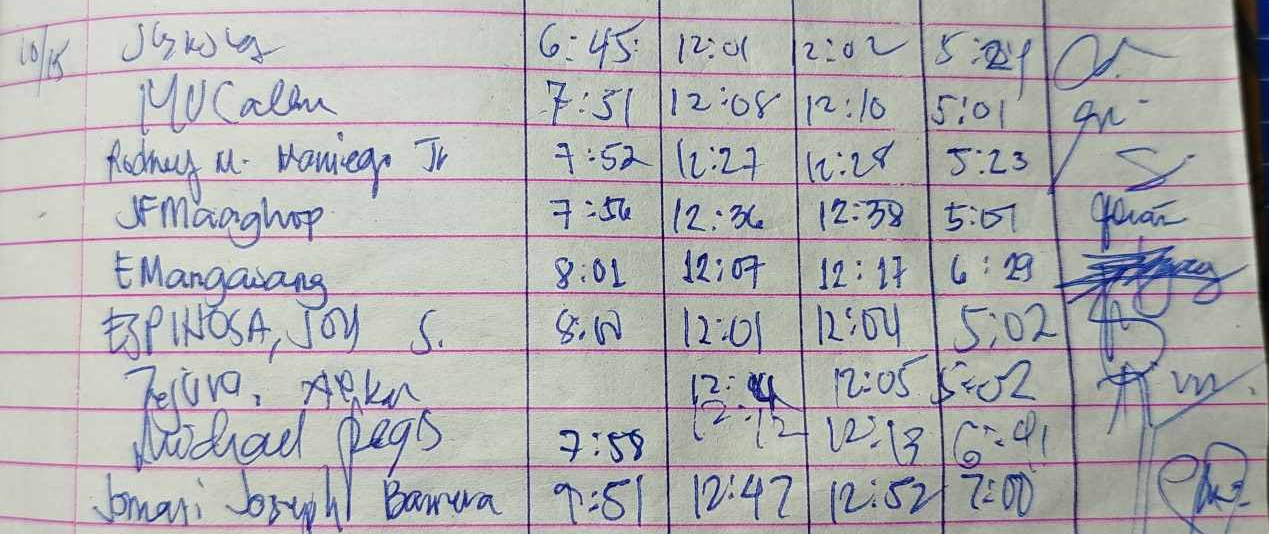 10/15 6:45 12:01 12:02 5:21
MVCalen 7:51 12:08 12:10 5:01
Rodney M. Maniego Jr 7:52 12:27 12:28 5:23
JFMaaghop 7:56 12:36 12:38 5:01
EMangasang 8:01 12:07 12:17 6:29
ESPINOSA, JOY S. 8:00 12:01 12:04 5:02
12:05 5:02
Michael Regis 7:58 12:12 12:13 6:41
Jomari Joseph Barrera 9:51 12:47 12:52 7:00